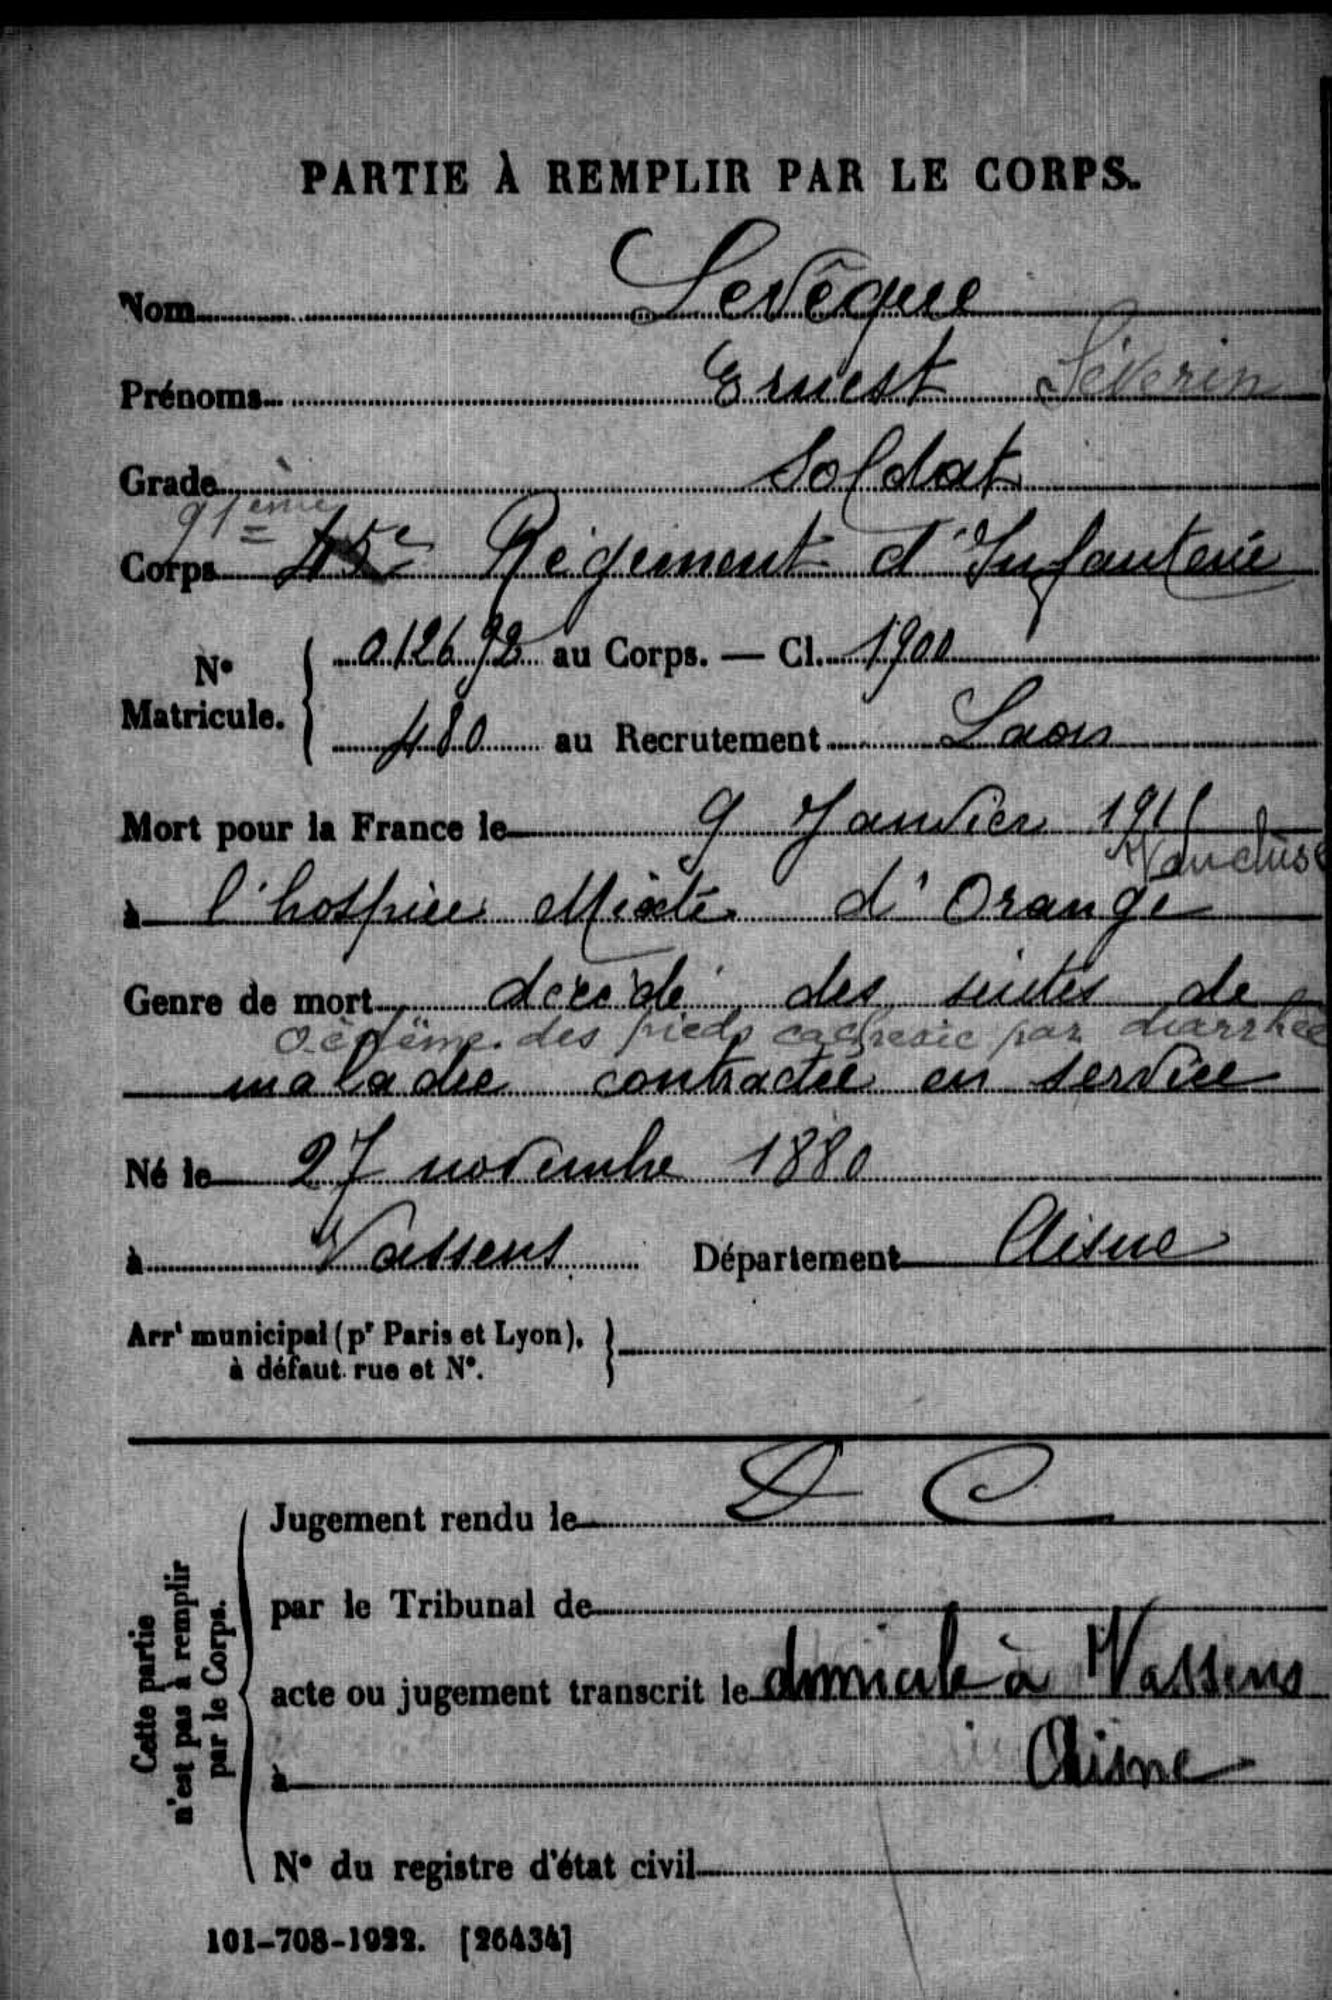 PARTIE À REMPLIR PAR LE CORPS.
Nom Levêque
Prénoms Ernest Séverin
Grade Soldat
91ème
Corps 45e Régiment d'Infanterie
N° Matricule.
012692 au Corps. — Cl. 1900
480 au Recrutement Laon
Mort pour la France le 9 Janvier 1915
Vaucluse
à l'hospice Mixte d'Orange
Genre de mort décédé des suites de
Oedème des pieds cachexie par diarrhée
maladie contractée en service
Né le 27 novembre 1880
à Vassens Département Aisne
Arrt municipal (pr Paris et Lyon),
à défaut rue et N°.
Cette partie
n'est pas à remplir
par le Corps.
Jugement rendu le D C
par le Tribunal de
acte ou jugement transcrit le domicile à Vassens
à Aisne
N° du registre d'état civil
101-708-1922. [26434]